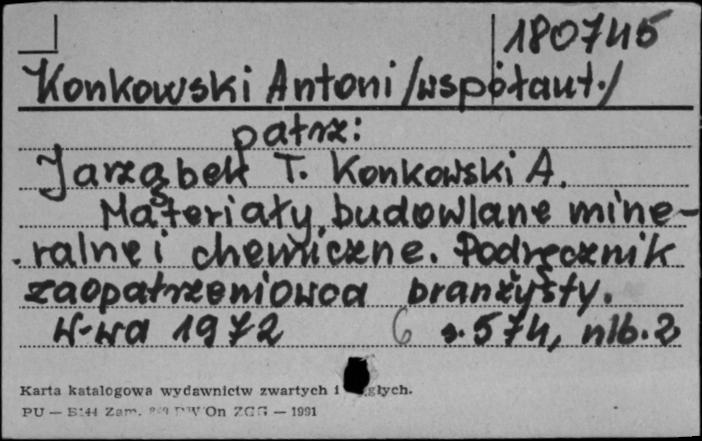 180745
Konkowski Antoni /współaut./
patrz:
Jarząbek T. Konkowski A.
Materiały budowlane mine-
ralne i chemiczne. Podręcznik
zaopatrzeniowca branżysty.
W-wa 1972 6 s. 574, nlb. 2
Karta katalogowa wydawnictw zwartych i
PU — Zam. On ZGG — 1991